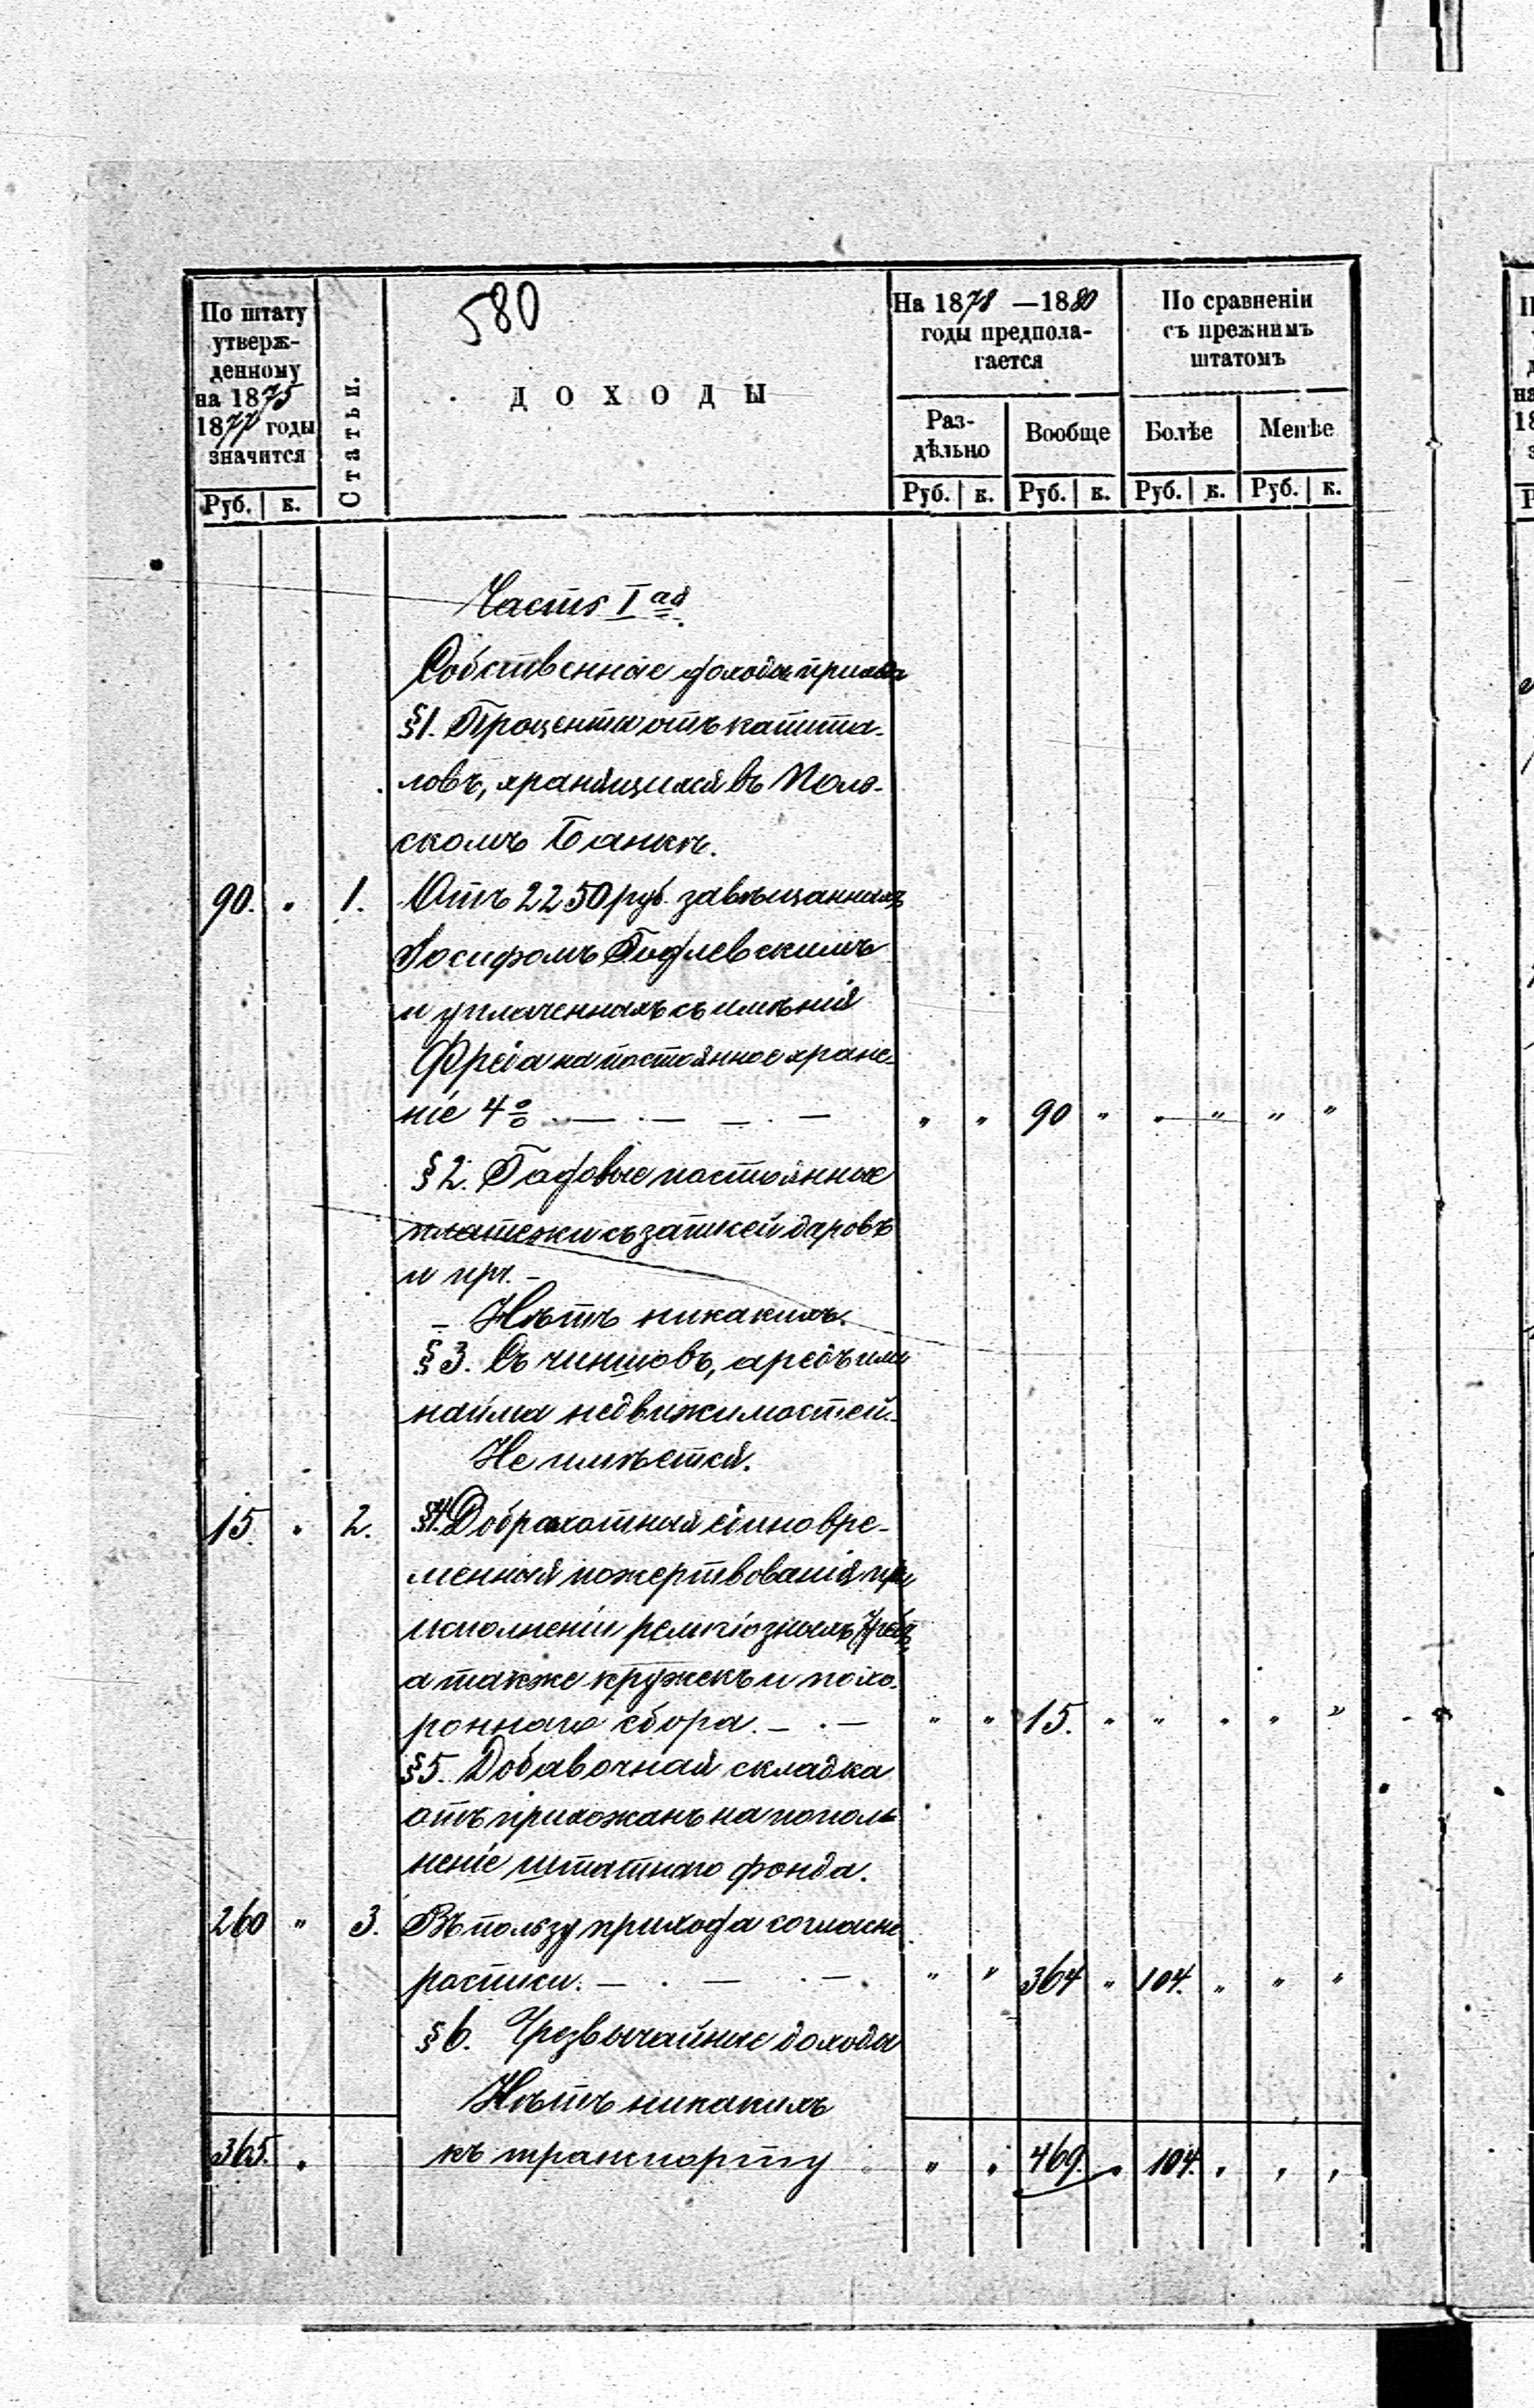 580
По штату
утверж-
денному
на 1875
1877 годы
значится
Руб. к.
Статьи.
ДОХОДЫ
На 1878 —1880
годы предпола-
гается
Раз-
дѣльно
Вообще
Руб. к. Руб. к.
По сравненіи
съ прежнимъ
штатомъ
Болѣе Менѣе
Руб. к. Руб. к.
Часть I ая
Собственные доходы прихода
§1. Проценты отъ капита-
ловъ, хранящихся въ Поль-
скомъ Банкѣ.
90. " 1. Отъ 2250 руб. завѣщанныхъ
Іосифомъ Годлевскимъ
и уплаченныхъ съ имѣнія
на постоянное хране-
ніе 4% . — . — — . — " " 90 " " " " "
§2. Годовые постоянные
платежи съ записей даровъ
и пр. -
— Нѣтъ никакихъ.
§3. Съ чиншовъ, аредъ или
найма недвижимостей.
Не имѣется.
15. " 2. §4. Доброхотныя единовре-
менныя пожертвованія при
исполненіи религіозныхъ требъ,
а также кружекъ и похо-
роннаго сбора. — . — " " 15. " " " " "
§5. Добавочная складка
отъ прихожанъ на попол-
неніе штатнаго фонда.
260 " 3. Въ пользу прихода согласно
росписи. — . — . — . " " 364 " 104. " " "
§6. Чрезвычайные доходы
Нѣтъ никакихъ
365. " къ транспорту " " 469. " 104. " " "